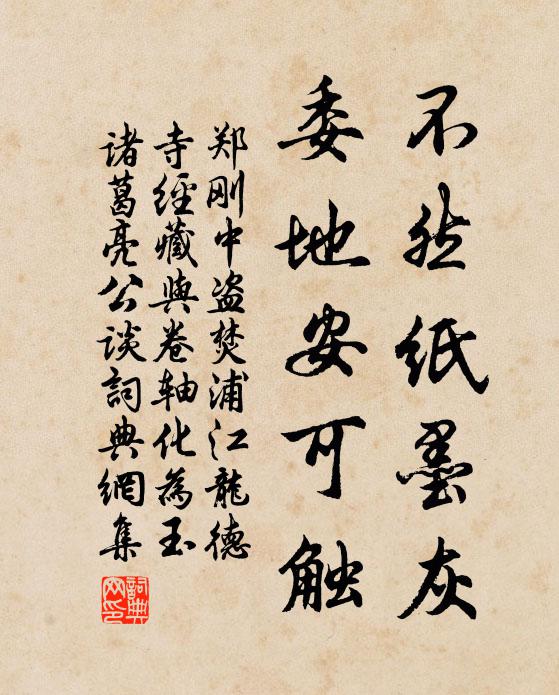 不然纸墨灰
委地安可触
郑刚中盗焚浦江龍德
寺經藏與卷轴化為玉
诸葛亮公谈詞典網集
詞典网印